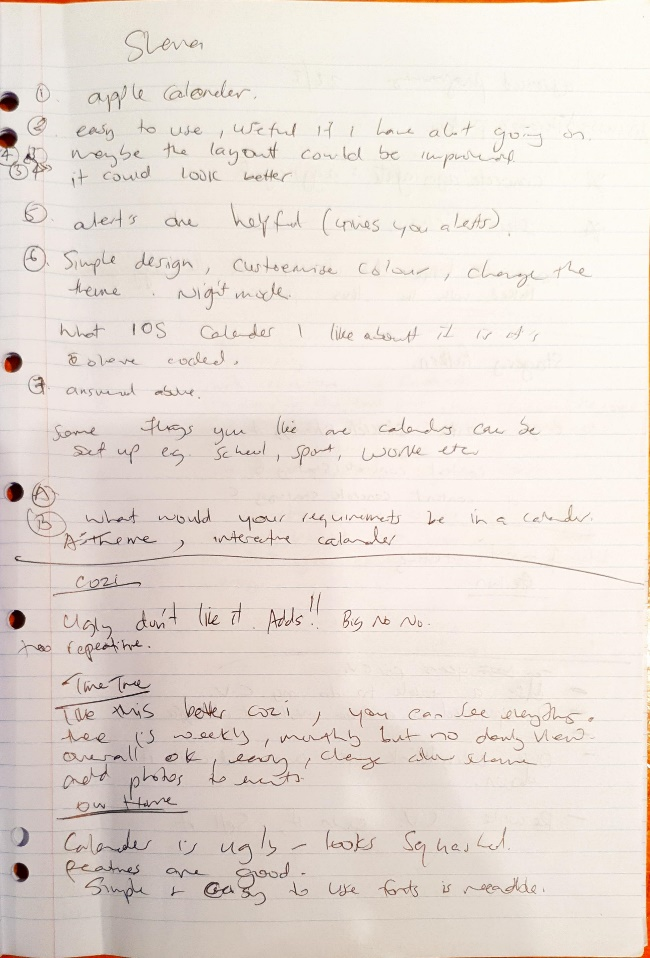 ① apple Calander.
② easy to use, useful if I have alot going on.
④ maybe the layout could be improved
③ it could look better
⑤ alert's are helpful (gives you alerts).
⑥ Simple design, customise colour, change the
theme. Night mode.
What IOS Calender I like about it is it's
coded.
⑦ answered above.
Some things you like are calendars can be
set up eg. school, sport, work etc
Ⓐ
Ⓑ What would your requirements be in a calander.
A: theme, interactive calander
Cozi
Ugly don't like it. Adds!! Big No No.
too repeative.
Time Tree
like this better cozi, you can see everything.
there is weekly, monthly but no daily view.
overall ok, easy, change colour scheme
add photos to events.
Our Home
Calander is ugly – looks Squashed.
features are good.
Simple + easy to use fonts is readable.